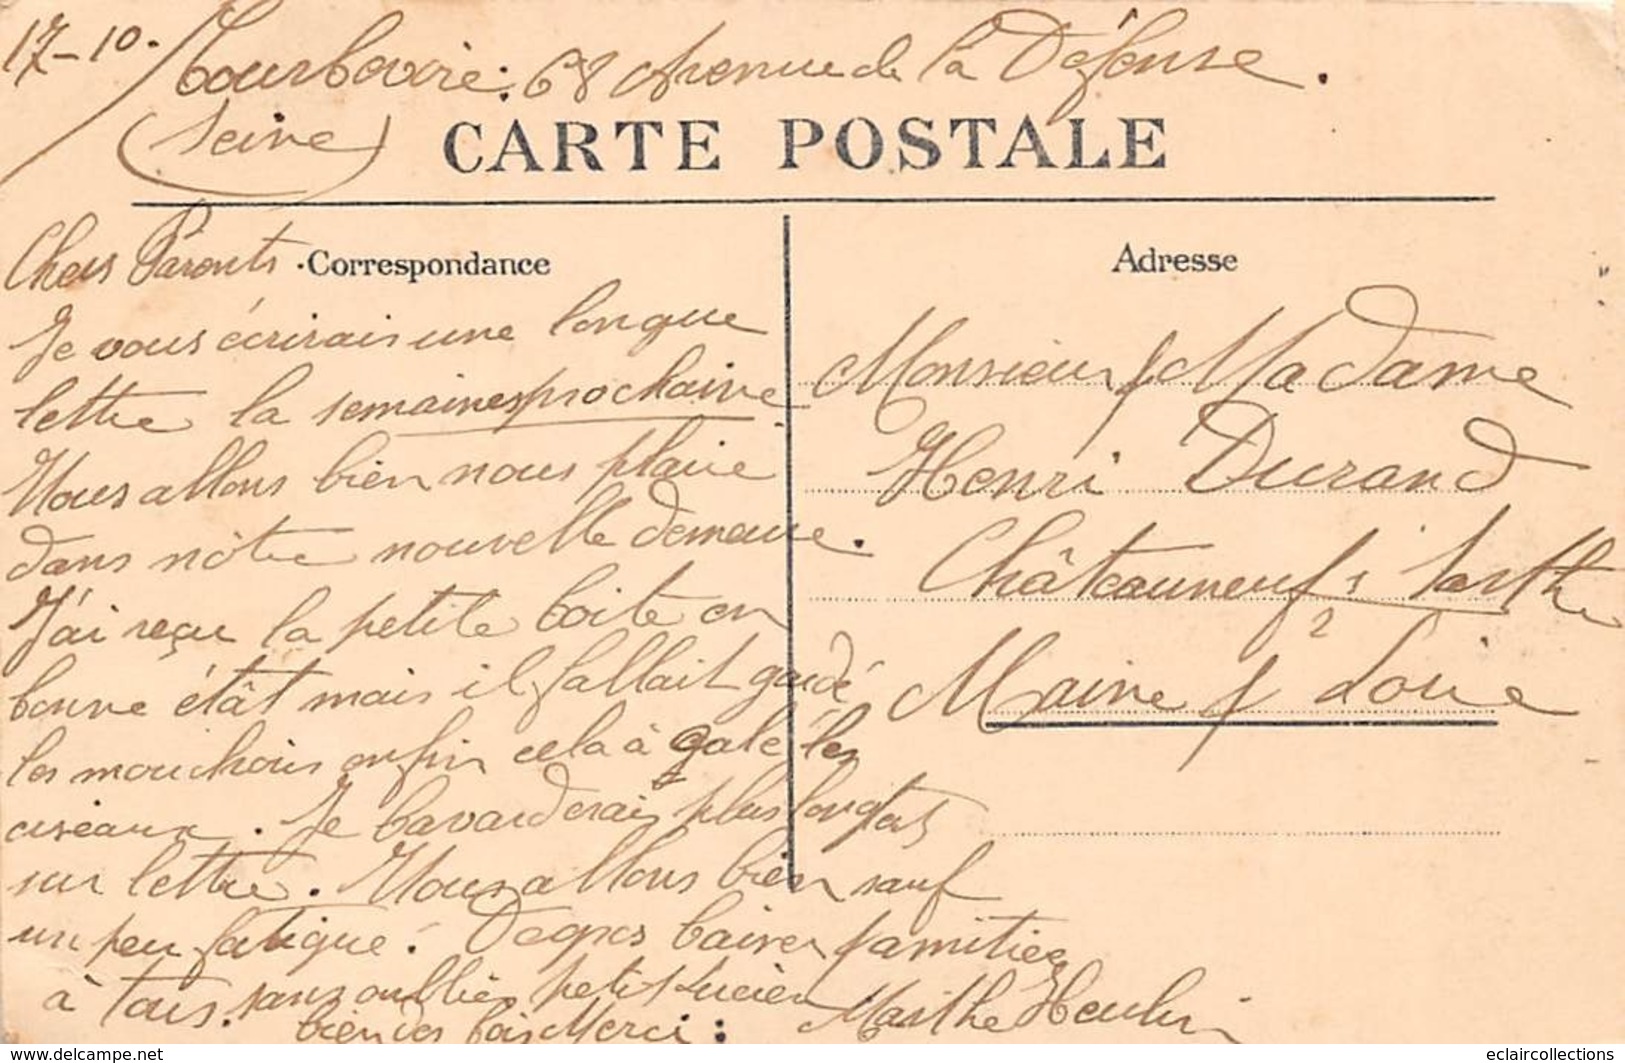 17-10- Courbevoie : 68 Avenue de la Défense.
(Seine)
CARTE POSTALE
Chers Parents
Correspondance
Je vous écrirais une longue
lettre la semaine prochaine.
Nous allons bien nous plaire
dans nôtre nouvelle demeure.
J'ai reçu la petite boite en
bonne étât mais il fallait gardé
les mouchoirs enfin cela à gale les
ciseaux. Je bavarderais plus longtps
sur lettre. Nous allons bien sauf
un peu fatigué. De gros baisers & amitiés
à tous. sans oublier petit Lucien
bien des fois Merci : Marthe Heulin
Adresse
Monsieur & Madame
Henri Durand
Châteauneuf s Sarthe
Maine & Loire
eclaircollections.delcampe.net
eclaircollections